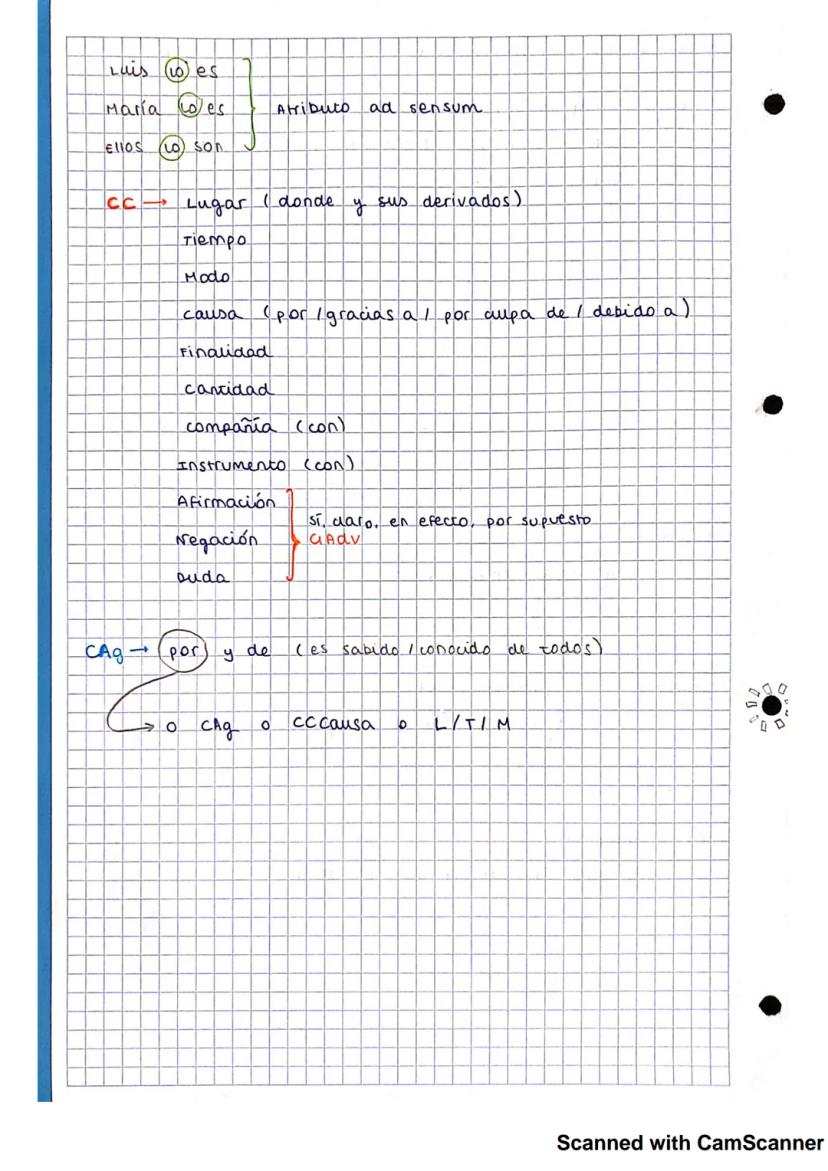 Luis lo es
María lo es
Ellos lo son
Atributo ad sensum
CC → Lugar (donde y sus derivados)
Tiempo
Modo
Causa (por / gracias a / por culpa de / debido a)
Finalidad
Cantidad
Compañía (con)
Instrumento (con)
Afirmación
Negación
Duda
sí, claro, en efecto, por supuesto
CAdv
CAg → por y de (es sabido / conocido de todos)
→ o CAg o CCCausa o L/T/M
Scanned with CamScanner